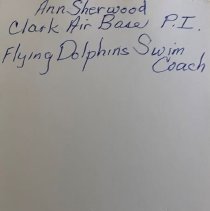 Ann Sherwood
Clark Air Base P.I.
Flying Dolphins Swim
Coach